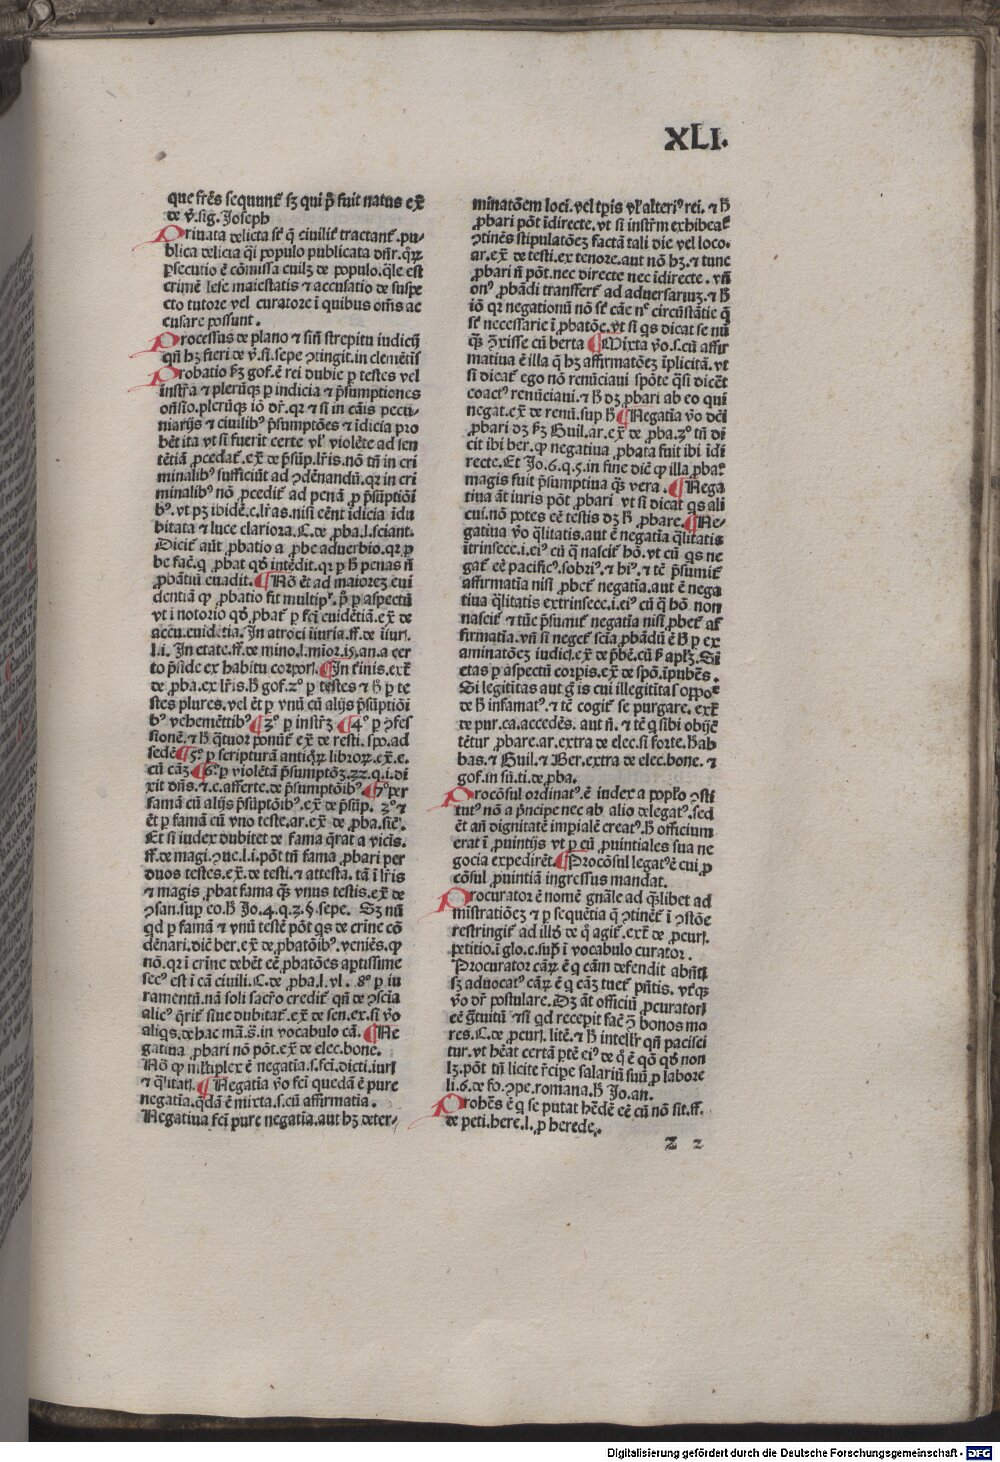 XLI.
que frēs sequunt̄ sꝫ qui p̄ fuit natus ex̄
de v̄.sig. Joseph
Priuata delicta st̄ q̄ ciuilit̄ tractant̄.pu-
blica delicta q̄i populo publicata dn̄r.qꝛꝫ
ꝑsecutio ē cōmissa cuilꝫ de populo.q̄le est
crimē lese maiestatis ⁊ accusatio de suspe
cto tutore vel curatore ī quibus om̄s ac
cusare possunt.
Processus de plano ⁊ sin̄ strepitu iudicij
qn̄ hꝫ fieri de v̄.si.sepe ꝯtingit.in clemētīs
Probatio ẜꝫ gof.ē rei dubie ꝑ testes vel
īnstr̄a ⁊ plerūqꝫ ꝑ indicia ⁊ p̄sumptiones
on̄sio.plerūqꝫ iō dr̄.qꝛ ⁊ si in cāis pecu-
niarijs ⁊ ciuilibꝰ p̄sumptōes ⁊ īdicia pro
bēt ita vt si fuerīt certe vl̄ violēte ad sen
tētiā ꝓcedat̄.ex̄ de p̄sūp.lr̄is.nō tn̄ in cri
minalibꝰ sufficiūt ad ꝯdēnandū.qꝛ in cri
minalibꝰ nō ꝓcedit̄ ad penā ꝓ p̄sūptiōi
bꝰ.vt pꝫ ibidē.c.lr̄as.nisi cēnt īdicia īdu
bitata ⁊ luce clariora.C.de ꝓba.l.sciant.
Dicit̄ aūt ꝓbatio a ꝓbe aduerbio.qꝛ ꝓ
be fac̄.q ꝓbat qd̓ intēdit.qꝛ ꝑ h̄ penas n̄
ꝓbātiū euadit.¶Nō ēt ad maiorez eui
dentiā ꝙ ꝓbatio fit multipꝛ.p̄ ꝑ aspectū
vt ī notorio qd̓ ꝓbat̄ ꝑ fcī euidētiā.ex̄ de
accu.euidētia.In atroci īiuria.ff.de īiur.
l.i. In etate.ff.de mino.l.mior.
to p̄side ex habitu corpor.¶In finis.ext̄
de ꝓba.ex lr̄is.h̄ gof.2º ꝑ testes ⁊ h̄ ꝑ te
stes plures.vel ēt ꝑ vnū cū alijs p̄sūptiōi
bꝰ vehemēttibꝰ¶3º ꝑ instr̄ꝫ ¶4º ꝑ ꝯfes
sionē.⁊ h̄ q̄tuor ponūt̄ ex̄ de resti.spo.ad
sedē¶5º ꝑ scripturā antiqꝛꝫ libroꝛꝫ.ex̄.e.
cū cāꝫ¶6º.ꝑ violētā p̄sumptōꝫ.22.q.i.di
xit dn̄s.⁊.c.afferte.de p̄sumptōibꝰ.¶7º per
famā cū alijs p̄sūptōibꝰ.ex̄ de p̄sūp. 2º ⁊
ēt ꝑ famā cū vno teste.ar.ex̄ de ꝓba.
Et si iudex dubitet de fama q̄rat a vicīs.
ff.de magi.ꝯue.l.i.pōt tn̄ fama ꝓbari per
duos testes.ex̄.de testi.⁊ attesta. tā ī lr̄is
⁊ magis ꝓbat fama qꝫ vnus testis.ex̄ de
ꝯsan.sup eo.h̄ Jo.4.q.2.§.sepe. Sꝫ nū
qd ꝑ famā ⁊ vnū testē pōt qs de crīne cō
dēnari.diē ber.ex̄ de ꝓbatōibꝰ.veniēs.ꝙ
nō.qꝛ ī crīne debēt eē ꝓbatōes aptissime
secꝰ est ī cā ciuili.C.de ꝓba.l.vl. 8º ꝑ iu
ramentū.nā soli sacr̄o credit̄ qn̄ de ꝯscia
alicꝰ q̄rit̄ siue dubitat̄.ex̄ de sen.ex.si v̄o
aliqs.de hac mā.s̄.in vocabulo cā.¶Ne
gatiua ꝓbari nō pōt.ex̄ de elec.bone.
Nō ꝙ multiplex ē negatīa.s.fcī.dicti.iur
⁊ q̄litat.¶Negatīa v̄o fcī quedā ē pure
negatīa.q̄dā ē mixta.s.cū affirmatīa.
Negatiua fcī pure negatīa.aut hꝫ deter-
minatōem loci.vel tꝑis vl̄ alteriꝰ rei.⁊ h̄
ꝓbari pōt īdirecte.vt si instr̄m exhibeat̄
ꝯtinēs stipulatōeꝫ factā tali die vel loco.
ar.ex̄ de testi.ex tenore.aut nō hꝫ.⁊ tunc
ꝓbari n̄ pōt.nec directe nec īdirecte.vn̄
onꝰ ꝓbādi transffert̄ ad aduersariuꝫ.⁊ h̄
iō qꝛ negationū nō st̄ cāe nꝉ circūstātie q̄
st̄ necessarie ī ꝓbatōe.vt si qs dicat se nū
qꝫ ꝯ̄xisse cū berta ¶Mixta v̄o.s.cū affir
matiua ē illa q̄ hꝫ affirmatōeꝫ īplicitā.vt
si dicat̄ ego nō renūciaui spōte q̄si dicēt
coactꝰ renūciaui.⁊ h̄ dꝫ ꝓbari ab eo qui
negat.ex̄ de renū.sup h̄¶Negatīa v̄o dēi
ꝓbari dꝫ ẜꝫ Guil.ar.ex̄ de ꝓba.2º tn̄ di
cit ibi ber.ꝙ negatiua ꝓbata fuit ibi īdi
recte.Et Jo.6.q.5.in fine diē ꝙ illa ꝓbaº
magis fuit p̄sumptiua qꝫ vera.¶Nega
tiua āt iuris pōt ꝓbari vt si dicat qs ali
cui.nō potes eē testis dꝫ h̄ ꝓbare.¶Ne-
gatiua v̄o q̄litatis.aut ē negatīa q̄litatis
ītrinsece.i.eiꝰ cū q̄ nascit̄ hō.vt cū qs ne
gat̄ eē pacificꝰ.sobriꝰ.⁊ hiꝰ.⁊ tē p̄sumit̄
affirmatīa nisi ꝓbet̄ negatīa.aut ē nega
tiua q̄litatis extrinsece.i.eiꝰ cū q̄ hō non
nascit̄ ⁊ tūc p̄sumit̄ negatīa nisi ꝓbet̄ af
firmatīa.vn̄ si neget̄ scīa ꝓbādū ē h̄ ꝑ ex
aminatōeꝫ iudicꝭ.ex̄ de p̄bē.cū ẜ aplꝫ.Si
etas ꝑ aspectū corpis.ex̄ de spō.īpubēs.
Si legititas aut ḡ is cui illegititas oppoᵉ
de h̄ infamatꝰ.⁊ tē cogit̄ se purgare.ext̄
de pur.ca.accedēs. aut n̄.⁊ tē q sibi obijē
tētur ꝓbare.ar.extra de elec.si forte.h̄ab
bas.⁊ Guil.⁊ Ber.extra de elec.bone.⁊
gof.in sū.ti.de ꝓba.
Procōsul ordinatꝰ.ē index a poplo ꝯsti
tutꝰ nō a p̄ncipe nec ab alio delegatꝰ.sed
ēt an̄ dignitatē impialē creatꝰ.h̄ officium
erat ī ꝓuintijs vt ꝑ eū ꝓuintiales sua ne
gocia expedirēt.¶Procōsul legatꝰē cui ꝓ
cōsul ꝓuintiā ingressus mandat.
Procurator ē nomē gn̄ale ad q̄libet ad
ministratiōeꝫ ⁊ ꝑ sequētia q̄ ꝯtinēt̄ ī ꝯstōe
restringit̄ ad illū de q̄ agit̄.ext̄ de ꝓcur.
ꝑetitio.ī glo.c.supᵈ ī vocabulo curator.
Procurator cāꝛꝫ ē q cām defendit abn̄tꝭ
sꝫ aduocatꝰ cāꝛꝫ ē q cāꝫ tuet̄ pn̄tis. vt̄qꝫ
v̄o dr̄ postulare.Dꝫ āt officiū ꝓcuratorꝭ
eē ḡtuitū ⁊si qd recepit fac̄ ꝯ̄ bonos mo
res.C.de ꝓcurꝭ.litē.⁊ h̄ intellr̄ qn̄ pacisci
tur.vt hēat certā ꝑtē eiꝰ de q̄ ē qō qd̓ non
lꝫ.pōt tn̄ licite r̄cipe salariū suū ꝓ labore
li.6.de fo.ꝯpe.romana.h̄ Jo.an.
Probēs ē q se putat hēdē eē cū nō sit.ff.
de peti.here.l.ꝓ herede.
z 2
Digitalisierung gefördert durch die Deutsche Forschungsgemeinschaft - DFG